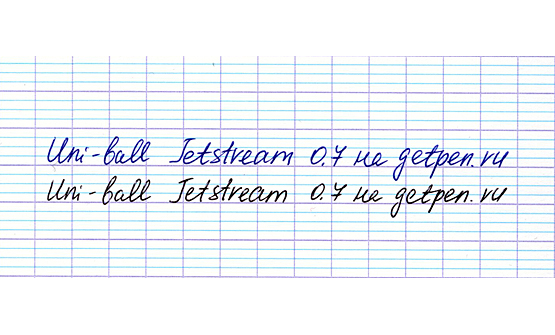 Uni-ball Jetstream 0.7 на getpen.ru
Uni-ball Jetstream 0.7 на getpen.ru